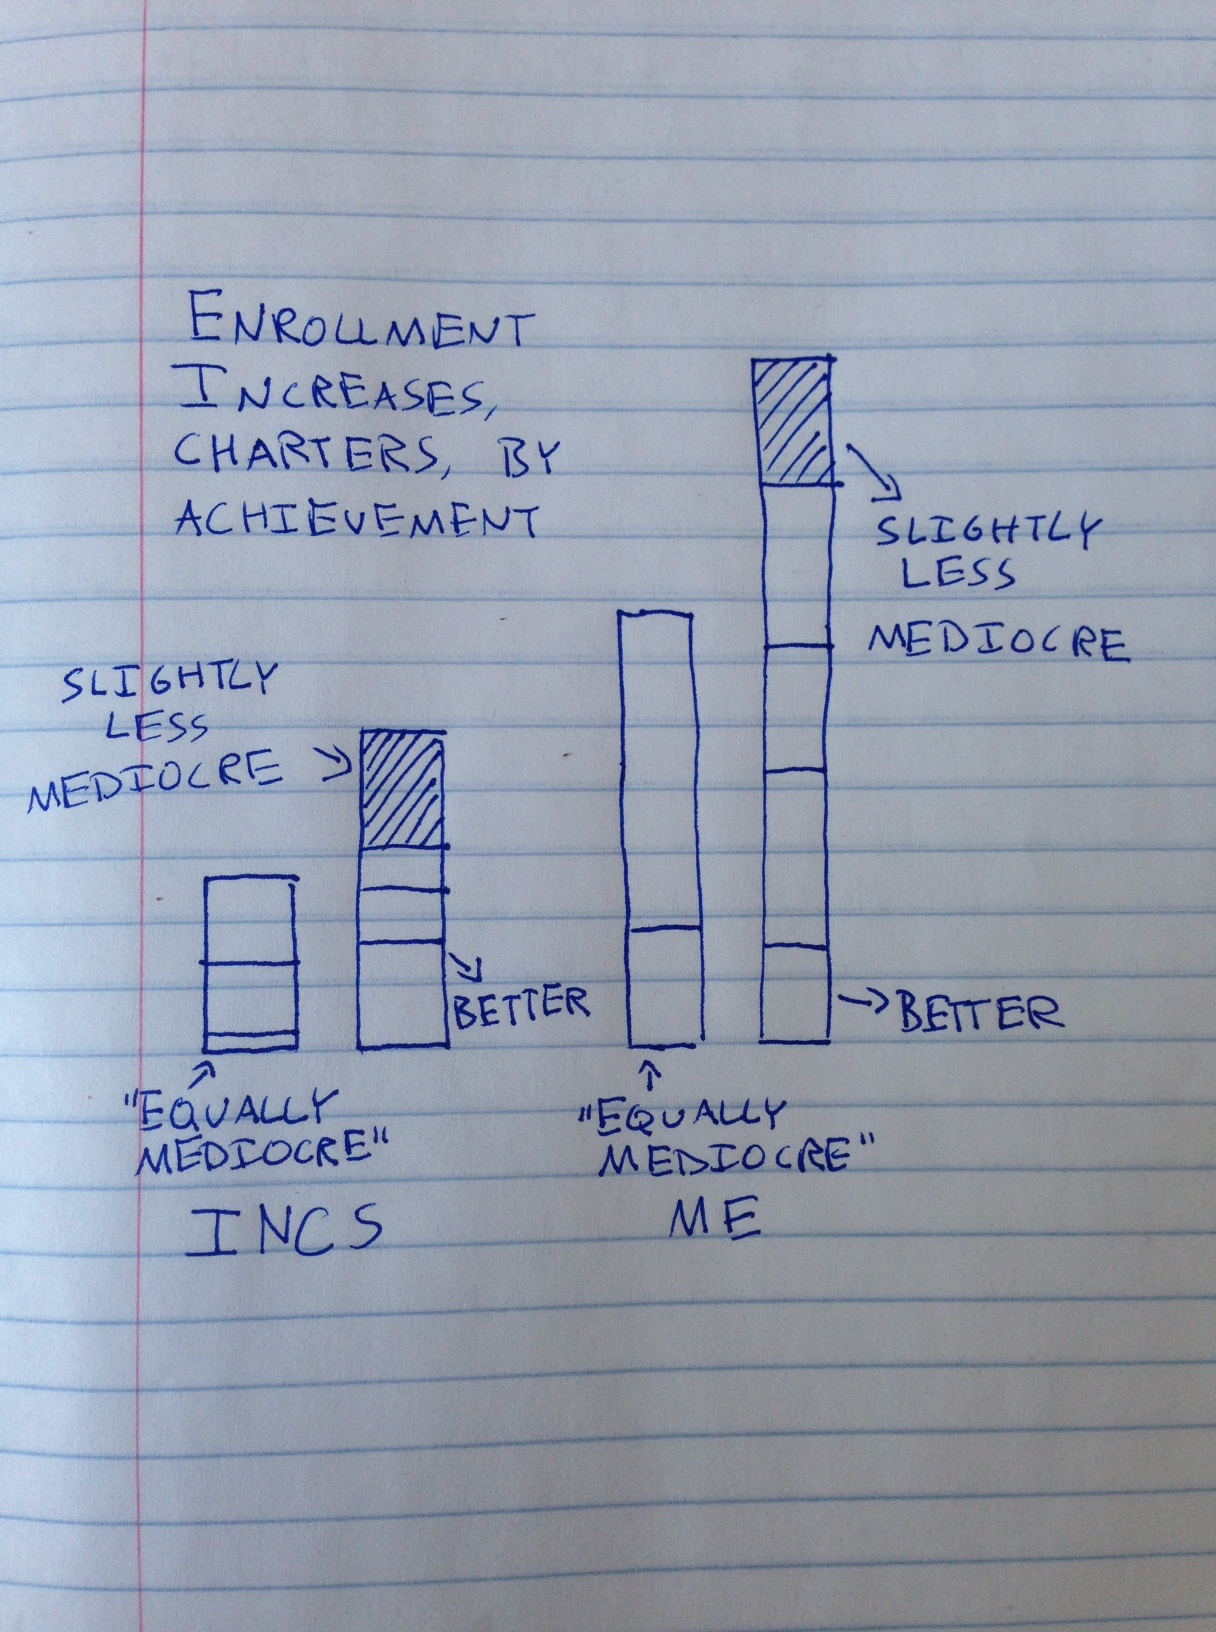 ENROLLMENT
INCREASES,
CHARTERS, BY
ACHIEVEMENT
SLIGHTLY
LESS
MEDIOCRE
SLIGHTLY
LESS
MEDIOCRE
BETTER
BETTER
"EQUALLY
MEDIOCRE"
"EQUALLY
MEDIOCRE"
INCS
ME